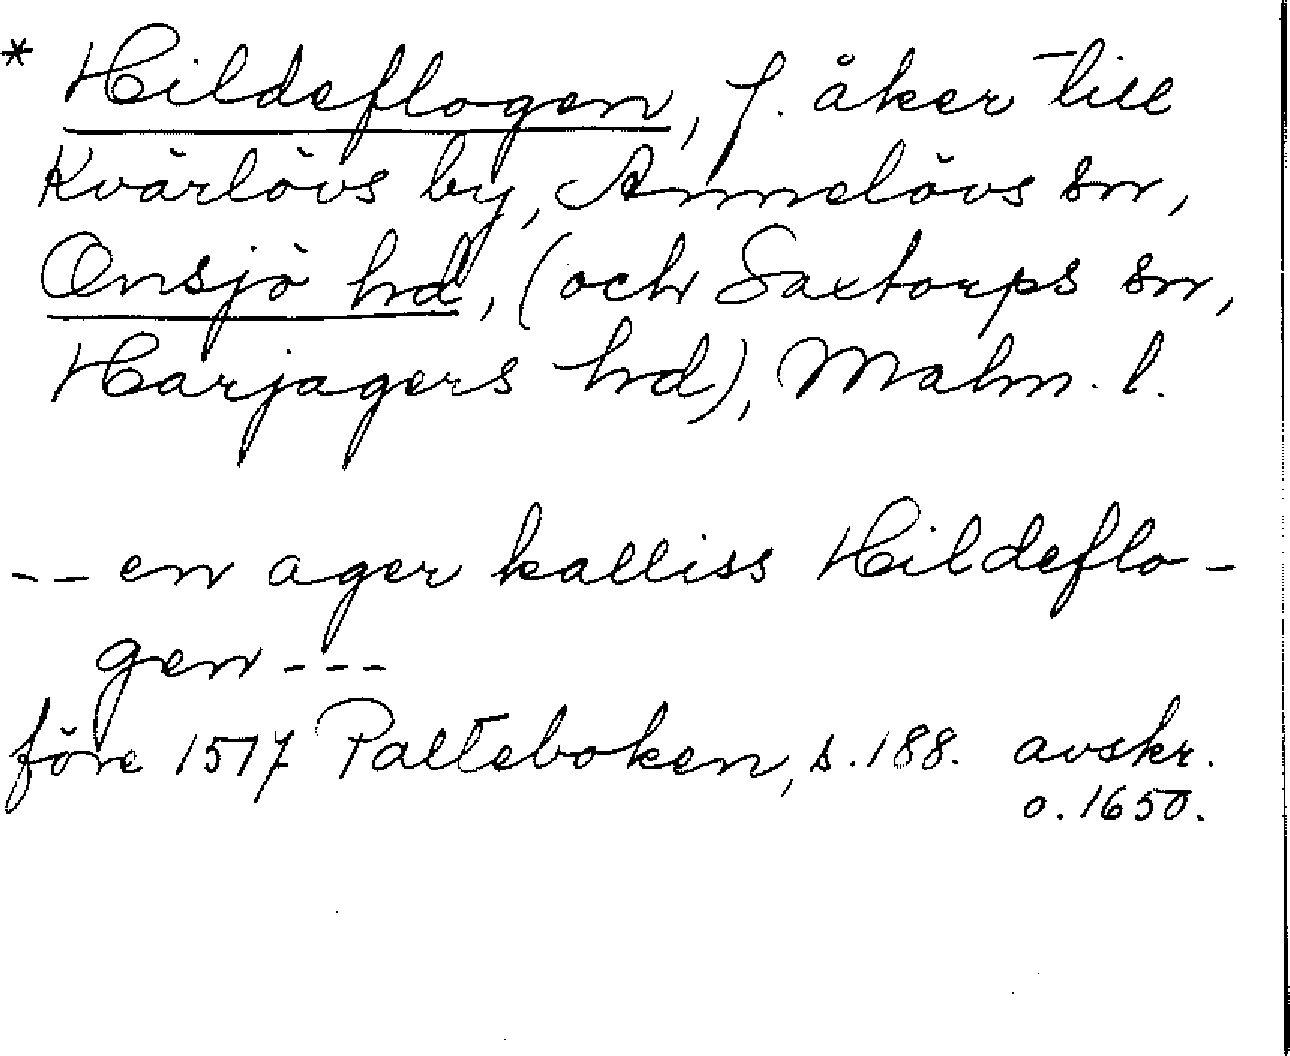 * Hildeflogen, f. åker till
Kvärlövs by, Annelövs sn,
Onsjö hd, (och Saxtorps sn,
Harjagers hd), Malm. l.
-- en ager kalliss Hildeflo-
gen ---
före 1517 Palteboken, s. 188. avskr.
o. 1650.